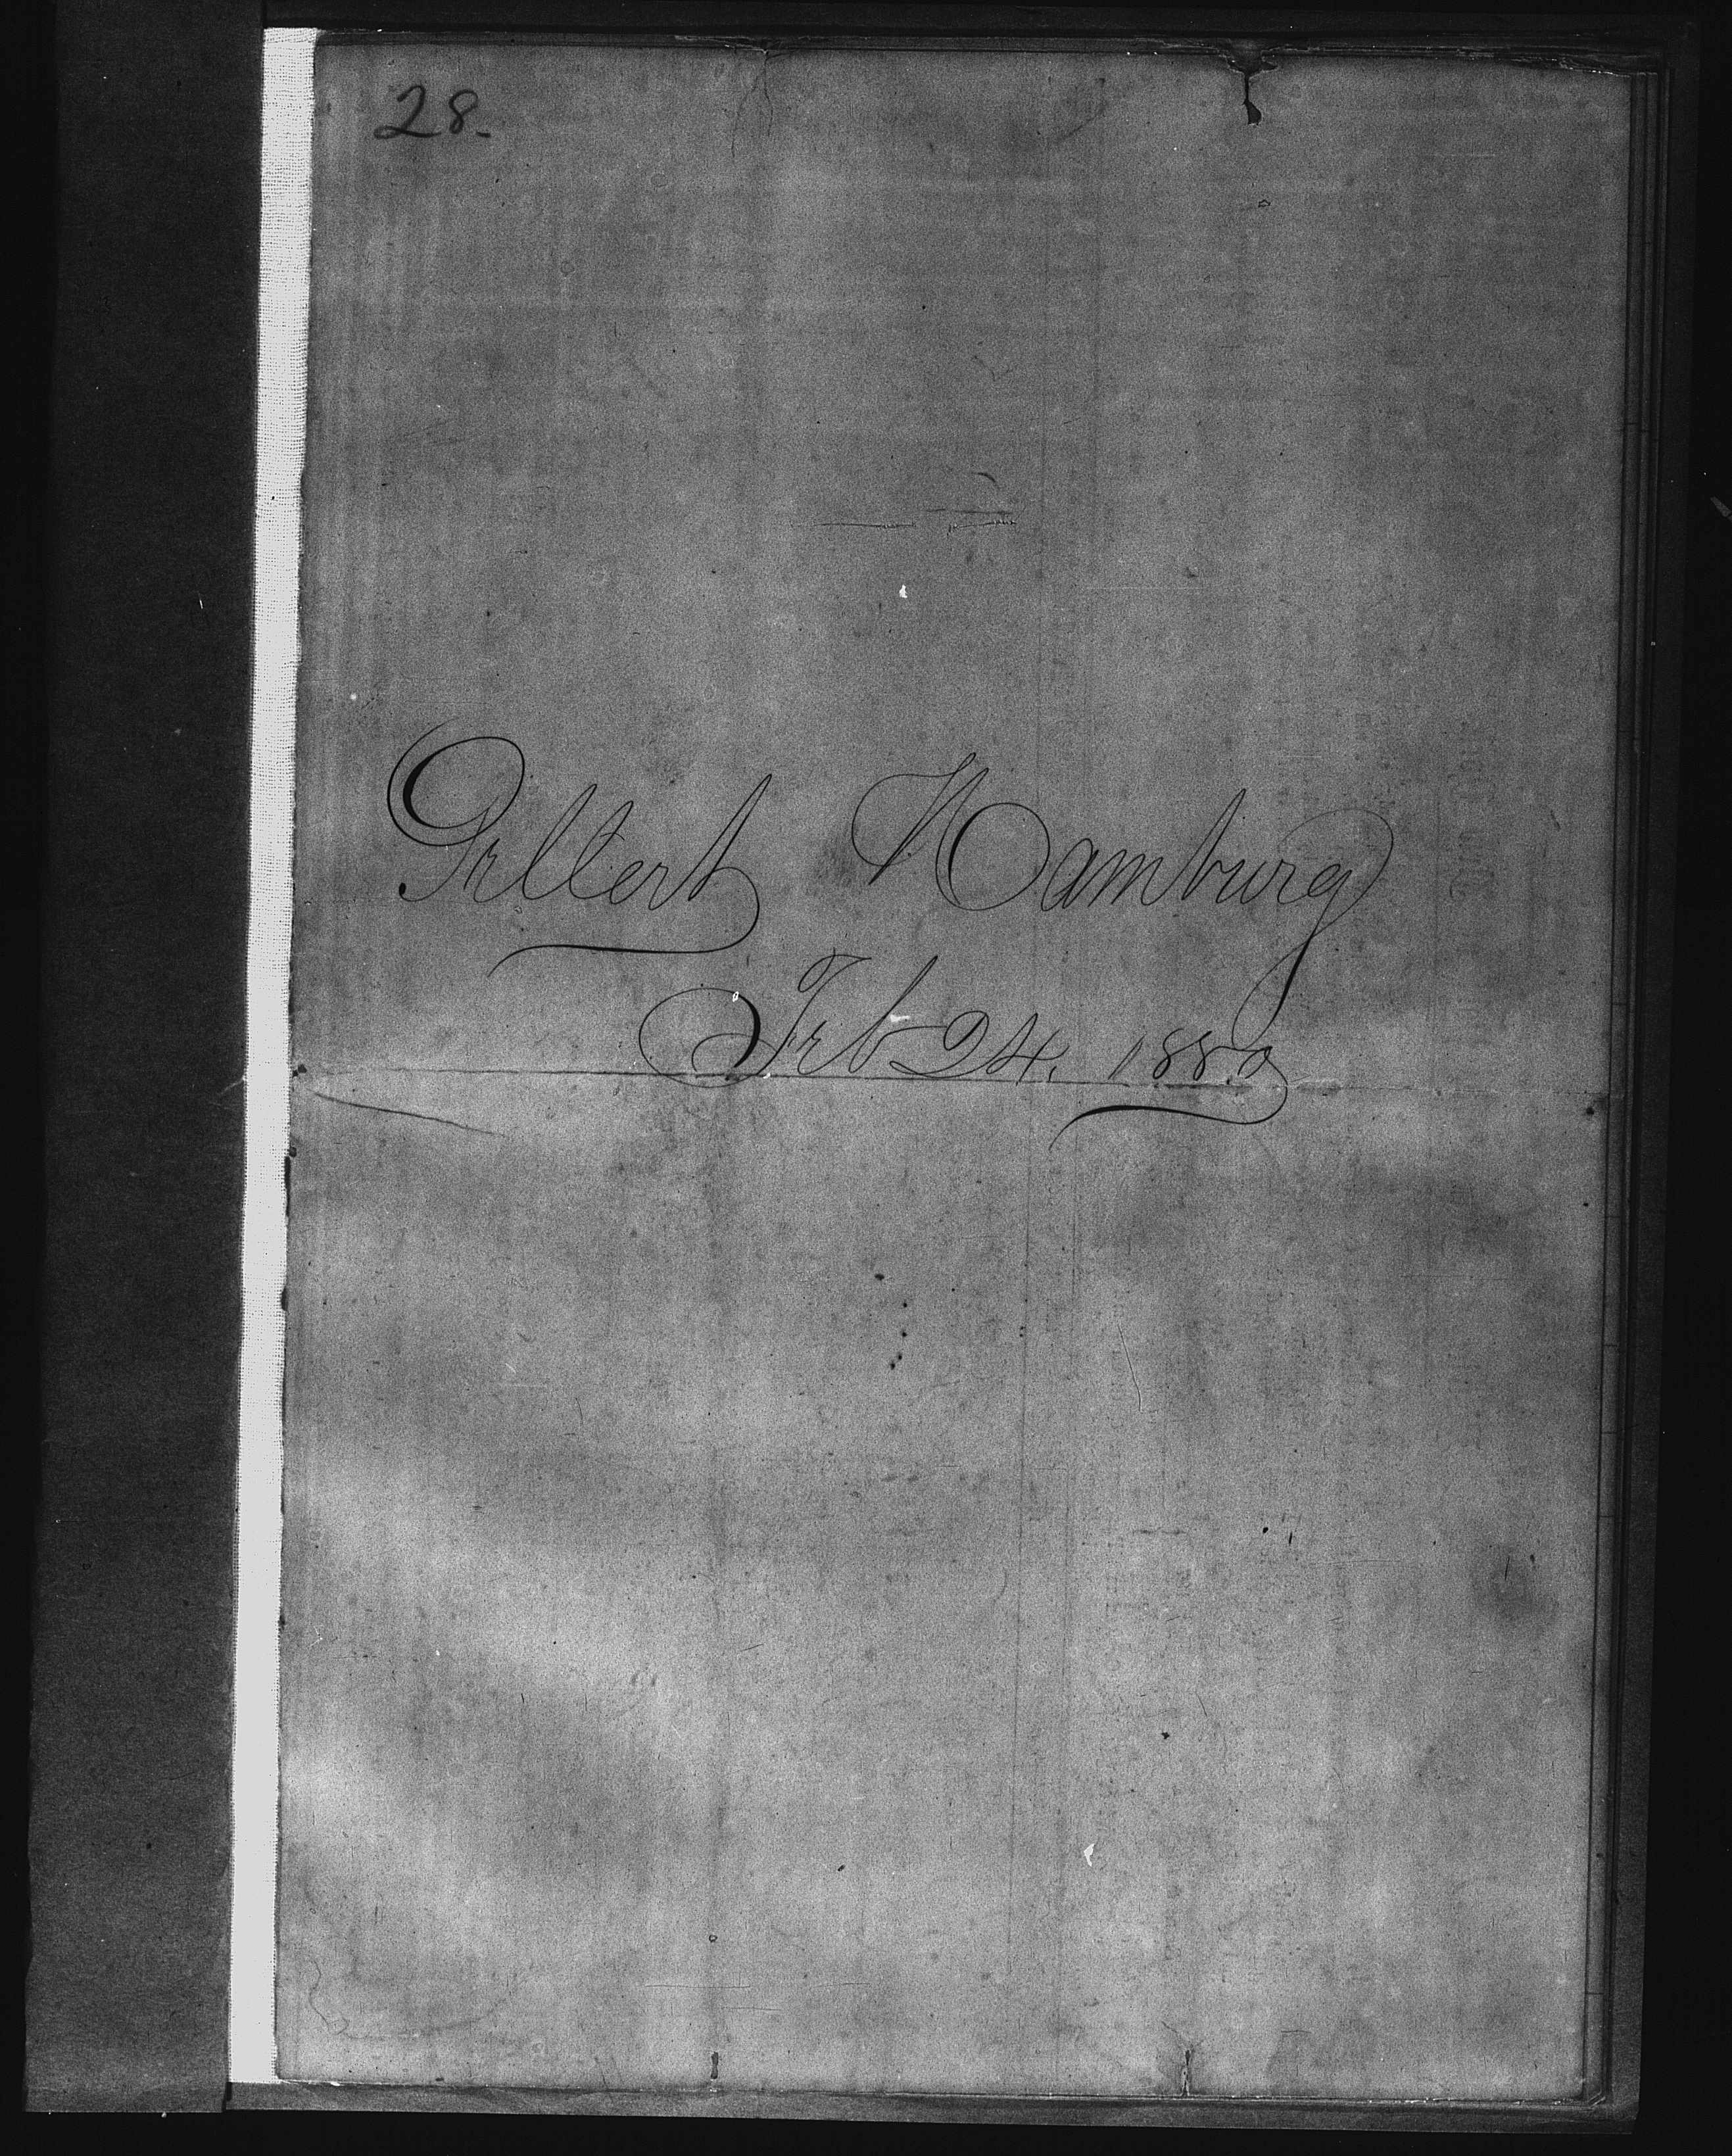 28.
Gellert Hamburg
Feb 24, 1880